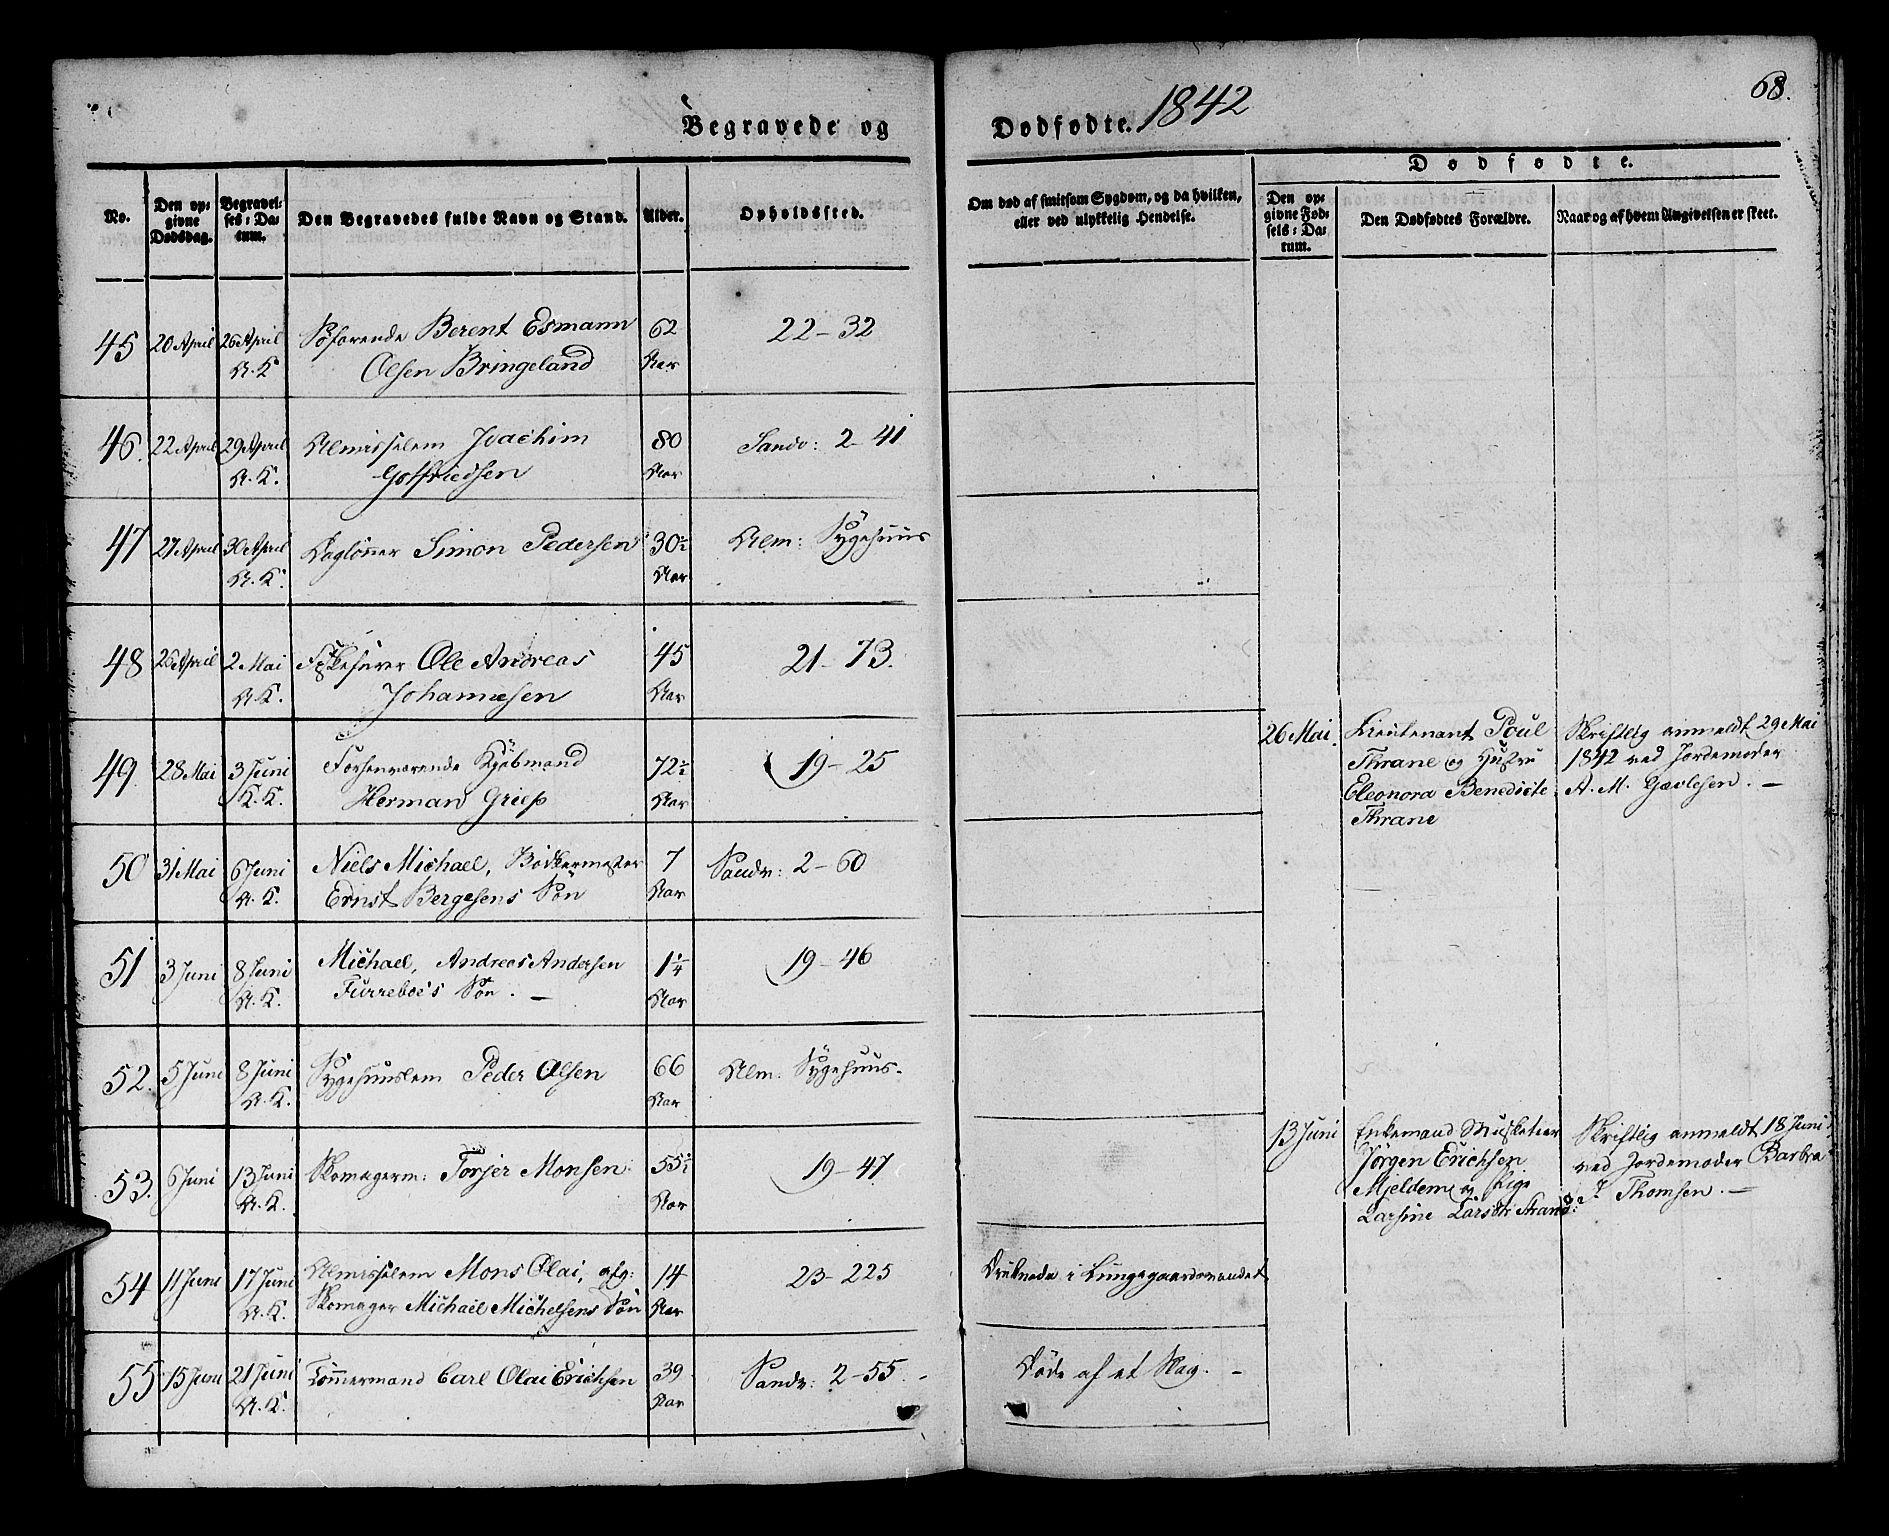 Begravede og Dødfødte. 1842
68.
No.
Den opgivne Dødsdag.
Begravelses-Datum.
Den Begravedes fulde Navn og Stand.
Alder.
Opholdssted.
Om død af smitsom Sygdom, og da hvilken, eller ved ulykkelig Hendelse.
Dødfødte.
Den opgivne Fødsels-Datum.
Den Dødfødtes Forældre.
Naar og af hvem Angivelsen er skeet.
45 20 April 26 April Søfarende Berent Esmann 62 22-32
A. K. Olsen Bringeland Aar
46. 22 April 29 April Almisselem Joachim 80 Sandv: 2-41
A. K. Gotfriedsen Aar
47 27 April 30 April Dagløner Simon Pedersen 30½ Alm: Sygehuus
A. K. Aar
48 26 April 2 Mai Ole Andreas 45 21-73.
A. K. Johannesen Aar
49 28 Mai 3 Juni Forhenværende Kjøbmand 72½ 19-25
K. K. Herman Griep Aar
26 Mai. Lieutenant Poul
Thrane og Hustru
Eleonora Benedicte
Thrane
Skriftlig anmeldt 29 Mai
1842 ved Jordemoder
A. M. Gavlesen. —
50 31 Mai 6 Juni Niels Michael, Bødkermester 7 Sandv: 2-60
A. K. Ernst Bergesens Søn Aar
51 3 Juni 8 Juni Michael, Andreas Andersen 1¼ 19-46
A. K. Furreboe's Søn. — Aar
52. 5 Juni 8 Juni Sygehuuslem Peder Olsen 66 Alm: Sygehuus.
A. K. Aar
53. 6 Juni 13 Juni Skomagerm: Torjer Monsen 55½ 19-47
A. K. Aar
13 Juni Enkemand Musketeer
Jørgen Erichsen
Mjeldem og Pige
Larsine Larsdtr Strand:
Skriftlig anmeldt 18 Juni
ved Jordemoder Barbra
Thomsen. —
54 11 Juni 17 Juni Almisselem Mons Olai, afg: 14 23-225 Druknede i Lungegaardsvandet
A. K. Skomager Michael Michelsens Søn Aar
55 15 Juni 21 Juni Tømmermand Carl Olai Erichsen 39 Sandv: 2-55. - Døde af et Slag. -
A. K. Aar